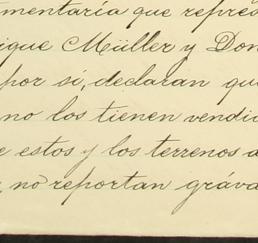 mentaría que repres
rique Müller y Don
por sí, declaran que
no los tienen vendid
e estos y los terrenos a
, no reportan gráva